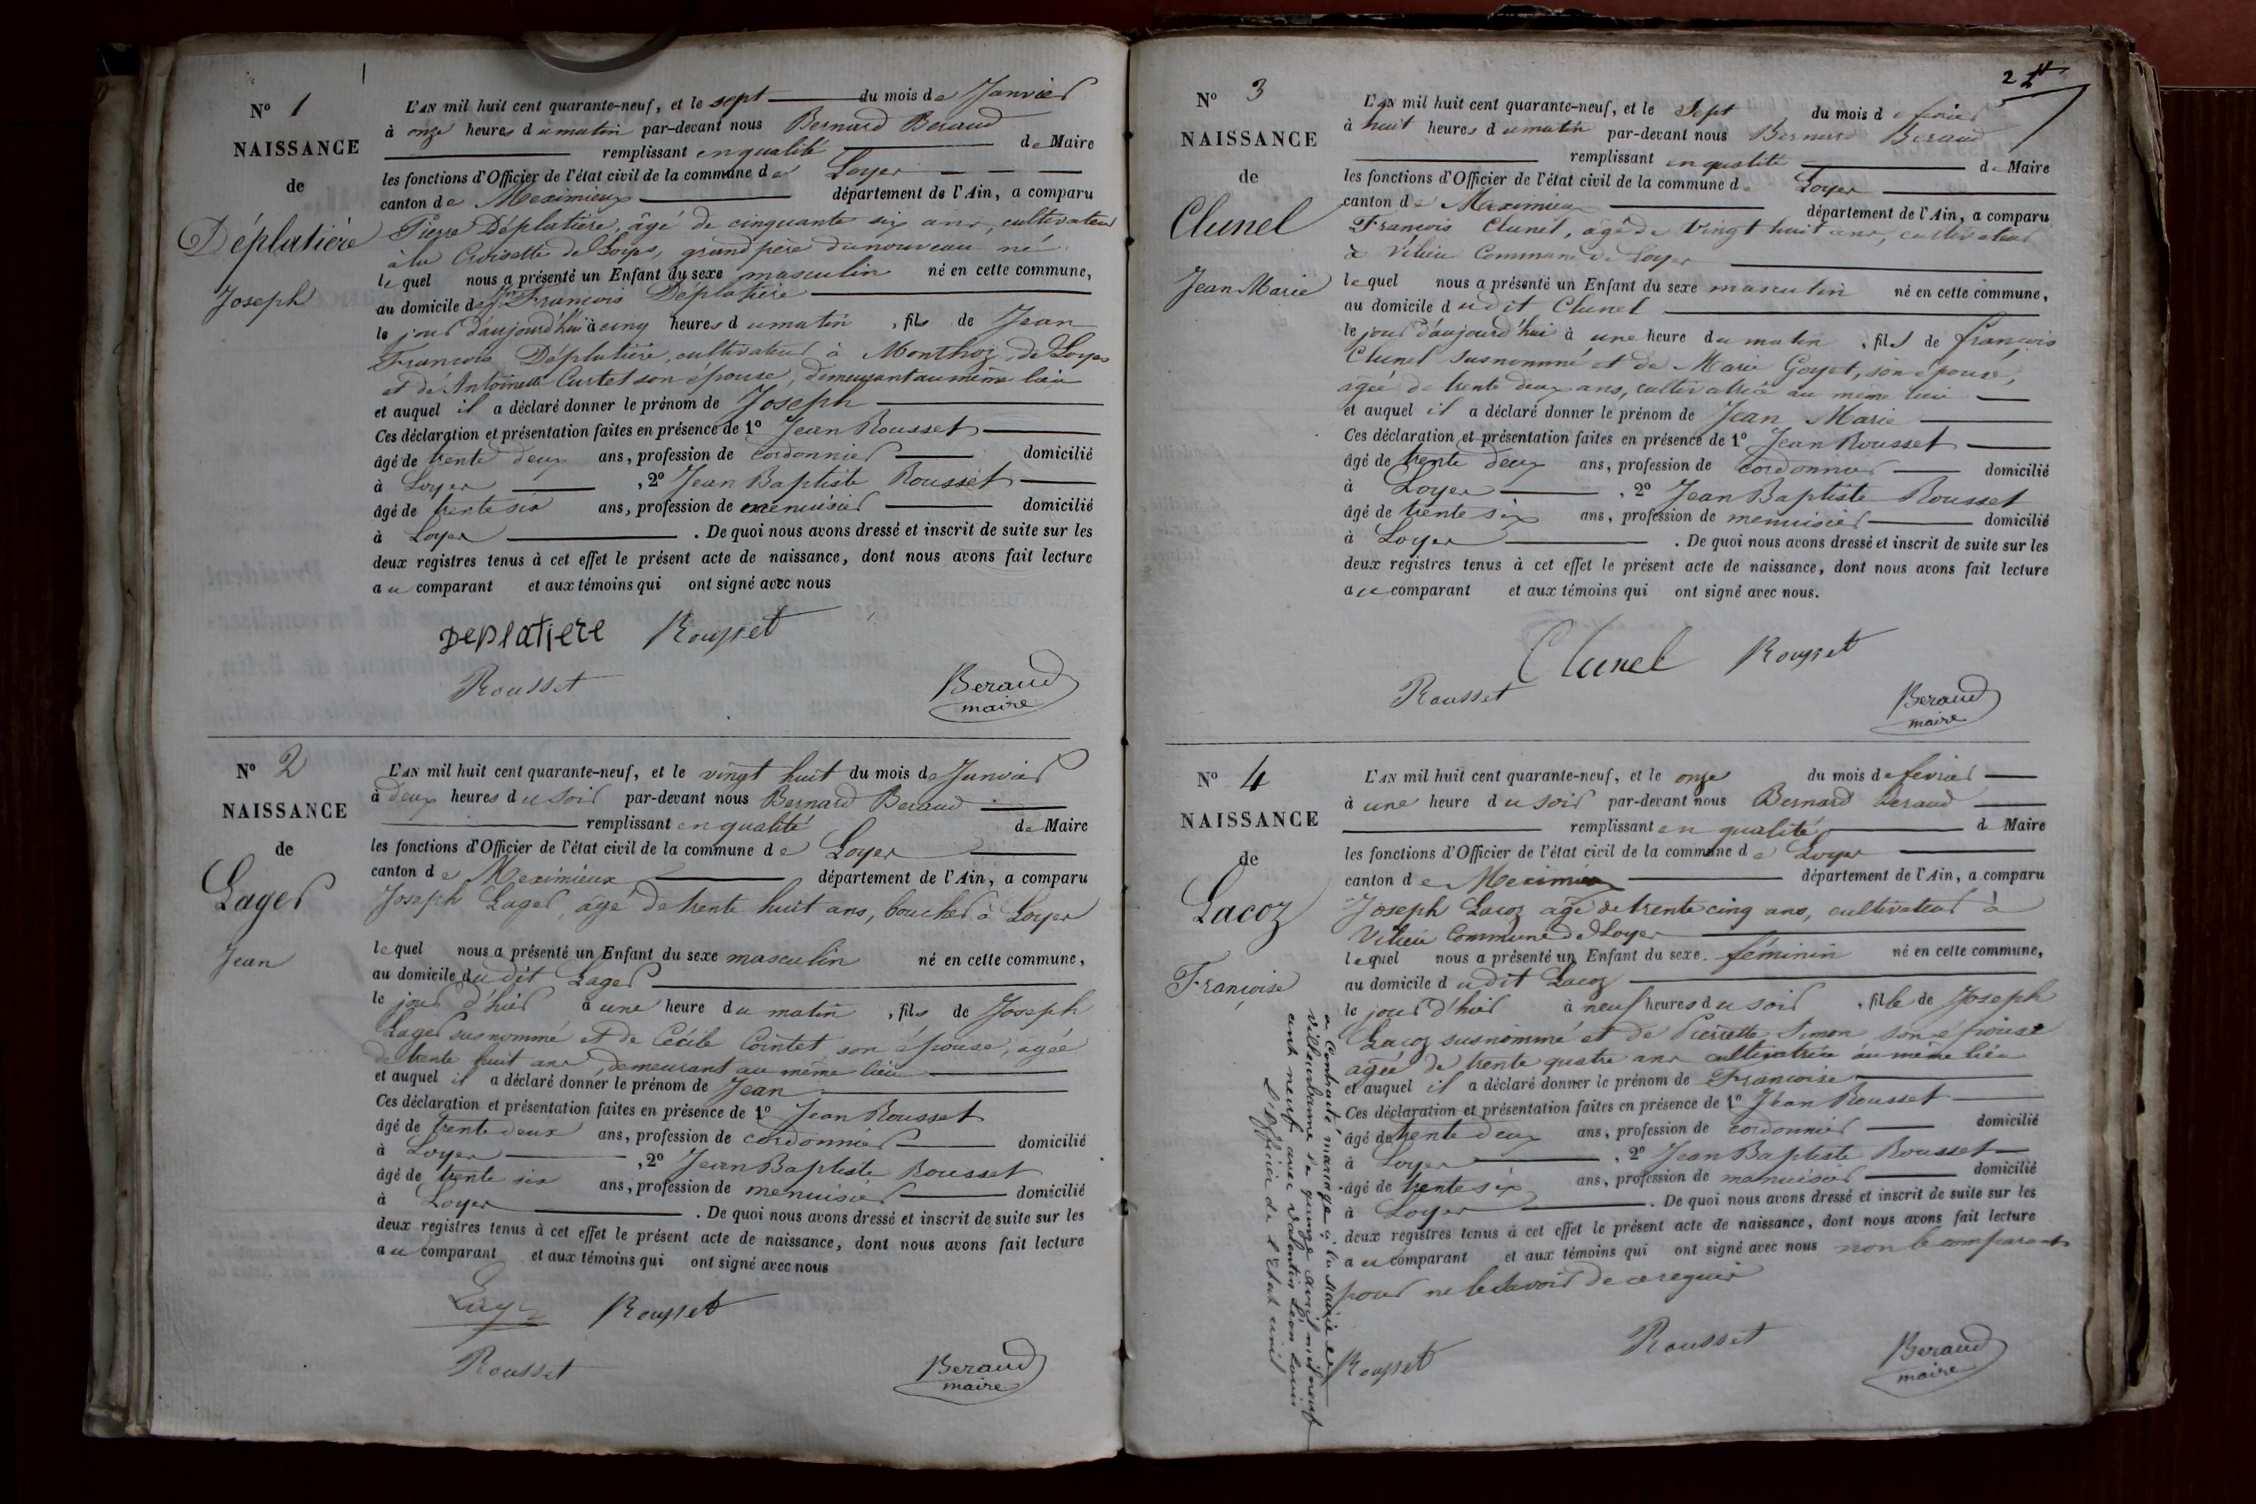 N° 1
NAISSANCE
de
Déplatière
Joseph
L'AN mil huit cent quarante-neuf, et le sept du mois de Janvier
à onze heures du matin par-devant nous Bernard Beraud
remplissant en qualité de Maire
les fonctions d'Officier de l'état civil de la commune de Loyes
canton de Meximieux département de l'Ain, a comparu
Pierre Déplatière, âgé de cinquante six ans, cultivateur
à la Croisette de Loyes, grand père du nouveau né
lequel nous a présenté un Enfant du sexe masculin né en cette commune,
au domicile de Jn François Déplatière
le jour d'aujourd'hui à cinq heures du matin, fils de Jean
François Déplatière, cultivateur à Monthoz de Loyes
et de Antoinette Curtet son épouse, demeurant au même lieu
et auquel il a déclaré donner le prénom de Joseph
Ces déclaration et présentation faites en présence de 1° Jean Rousset
âgé de trente deux ans, profession de cordonnier domicilié
à Loyes, 2° Jean Baptiste Rousset
âgé de trente six ans, profession de menuisier domicilié
à Loyes. De quoi nous avons dressé et inscrit de suite sur les
deux registres tenus à cet effet le présent acte de naissance, dont nous avons fait lecture
au comparant et aux témoins qui ont signé avec nous
Deplatiere Rousset
Rousset Beraud
maire
N° 2
NAISSANCE
de
Lager
Jean
L'AN mil huit cent quarante-neuf, et le vingt huit du mois de Janvier
à deux heures du soir par-devant nous Bernard Beraud
remplissant en qualité de Maire
les fonctions d'Officier de l'état civil de la commune de Loyes
canton de Meximieux département de l'Ain, a comparu
Joseph Lager, âgé de trente huit ans, boucher à Loyes
lequel nous a présenté un Enfant du sexe masculin né en cette commune,
au domicile du dit Lager
le jour d'hier à une heure du matin, fils de Joseph
Lager susnommé et de Cécile Cointet son épouse, âgée
de trente huit ans, demeurant au même lieu
et auquel il a déclaré donner le prénom de Jean
Ces déclaration et présentation faites en présence de 1° Jean Rousset
âgé de trente deux ans, profession de cordonnier domicilié
à Loyes, 2° Jean Baptiste Rousset
âgé de trente six ans, profession de menuisier domicilié
à Loyes. De quoi nous avons dressé et inscrit de suite sur les
deux registres tenus à cet effet le présent acte de naissance, dont nous avons fait lecture
au comparant et aux témoins qui ont signé avec nous
Rousset
Rousset Beraud
maire
2
N° 3
NAISSANCE
de
Clunel
Jean Marie
L'AN mil huit cent quarante-neuf, et le sept du mois de février
à huit heures du matin par-devant nous Bernard Beraud
remplissant en qualité de Maire
les fonctions d'Officier de l'état civil de la commune de Loyes
canton de Meximieux département de l'Ain, a comparu
François Clunel, âgé de vingt huit ans, cultivateur
à Vilieu Commune de Loyes
lequel nous a présenté un Enfant du sexe masculin né en cette commune,
au domicile dudit Clunel
le jour d'aujourd'hui à une heure du matin, fils de françois
Clunel susnommé et de Marie Goyet, son épouse,
âgée de trente deux ans, cultivatrice au même lieu
et auquel il a déclaré donner le prénom de Jean Marie
Ces déclaration et présentation faites en présence de 1° Jean Rousset
âgé de trente deux ans, profession de cordonnier domicilié
à Loyes, 2° Jean Baptiste Rousset
âgé de trente six ans, profession de menuisier domicilié
à Loyes. De quoi nous avons dressé et inscrit de suite sur les
deux registres tenus à cet effet le présent acte de naissance, dont nous avons fait lecture
au comparant et aux témoins qui ont signé avec nous.
Clunel Rousset
Rousset Beraud
maire
N° 4
NAISSANCE
de
Lacoz
Françoise
L'AN mil huit cent quarante-neuf, et le onze du mois de février
à une heure du soir par-devant nous Bernard Beraud
remplissant en qualité d Maire
les fonctions d'Officier de l'état civil de la commune de Loyes
canton de Meximieux département de l'Ain, a comparu
Joseph Lacoz âgé de trente cinq ans, cultivateur à
Vilieu Commune de Loyes
lequel nous a présenté un Enfant du sexe féminin né en cette commune,
au domicile dudit Lacoz
le jour d'hier à neuf heures du soir, fille de Joseph
Lacoz susnommé et de Pierrette Simon son épouse
âgée de trente quatre ans cultivatrice au même lieu
et auquel il a déclaré donner le prénom de Françoise
Ces déclaration et présentation faites en présence de 1° Jean Rousset
âgé de trente deux ans, profession de cordonnier domicilié
à Loyes, 2° Jean Baptiste Rousset
âgé de trente six ans, profession de menuisier domicilié
à Loyes. De quoi nous avons dressé et inscrit de suite sur les
deux registres tenus à cet effet le présent acte de naissance, dont nous avons fait lecture
au comparant et aux témoins qui ont signé avec nous non le comparant
pour ne le savoir de ce requis
Rousset Rousset Beraud
maire
a contracté mariage à la Mairie de
Villeurbanne le quinze avril mil neuf
cent neuf avec Valentin Léon Louis
L'Officier de l'Etat civil